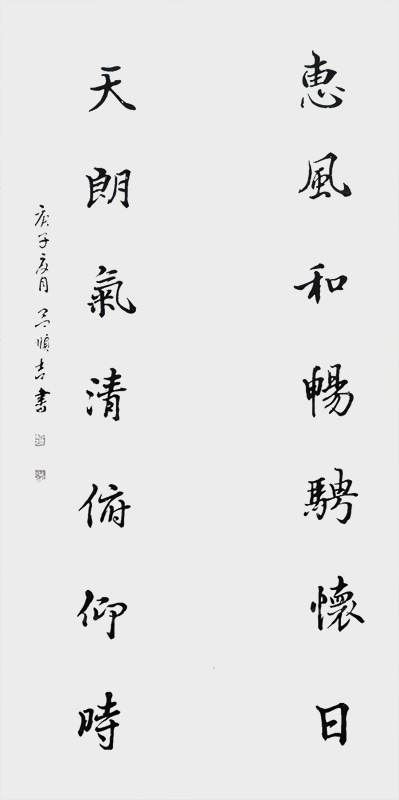 惠風和暢騁懷日
天朗氣清俯仰時
庚子夏月 吳順吉書